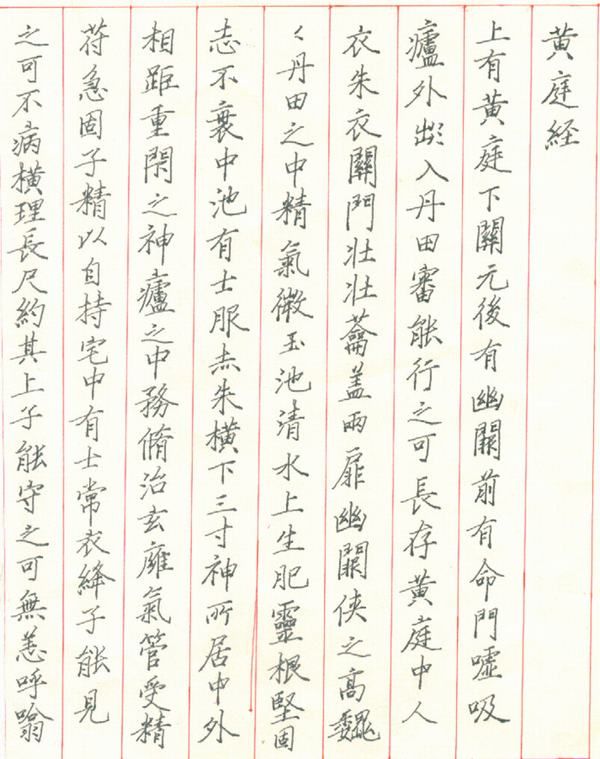 黄庭経
上有黄庭下關元後有幽闕前有命門噓吸
廬外出入丹田審能行之可長存黄庭中人
衣朱衣關門壯籥盖兩扉幽闕俠之高巍
々丹田之中精氣微玉池清水上生肥靈根堅固
志不衰中池有士服赤朱橫下三寸神所居中外
相距重閇之神廬之中務脩治玄廱氣管受精
苻急固子精以自持宅中有士常衣絳子能見
之可不病橫理長尺約其上子能守之可無恙呼噏